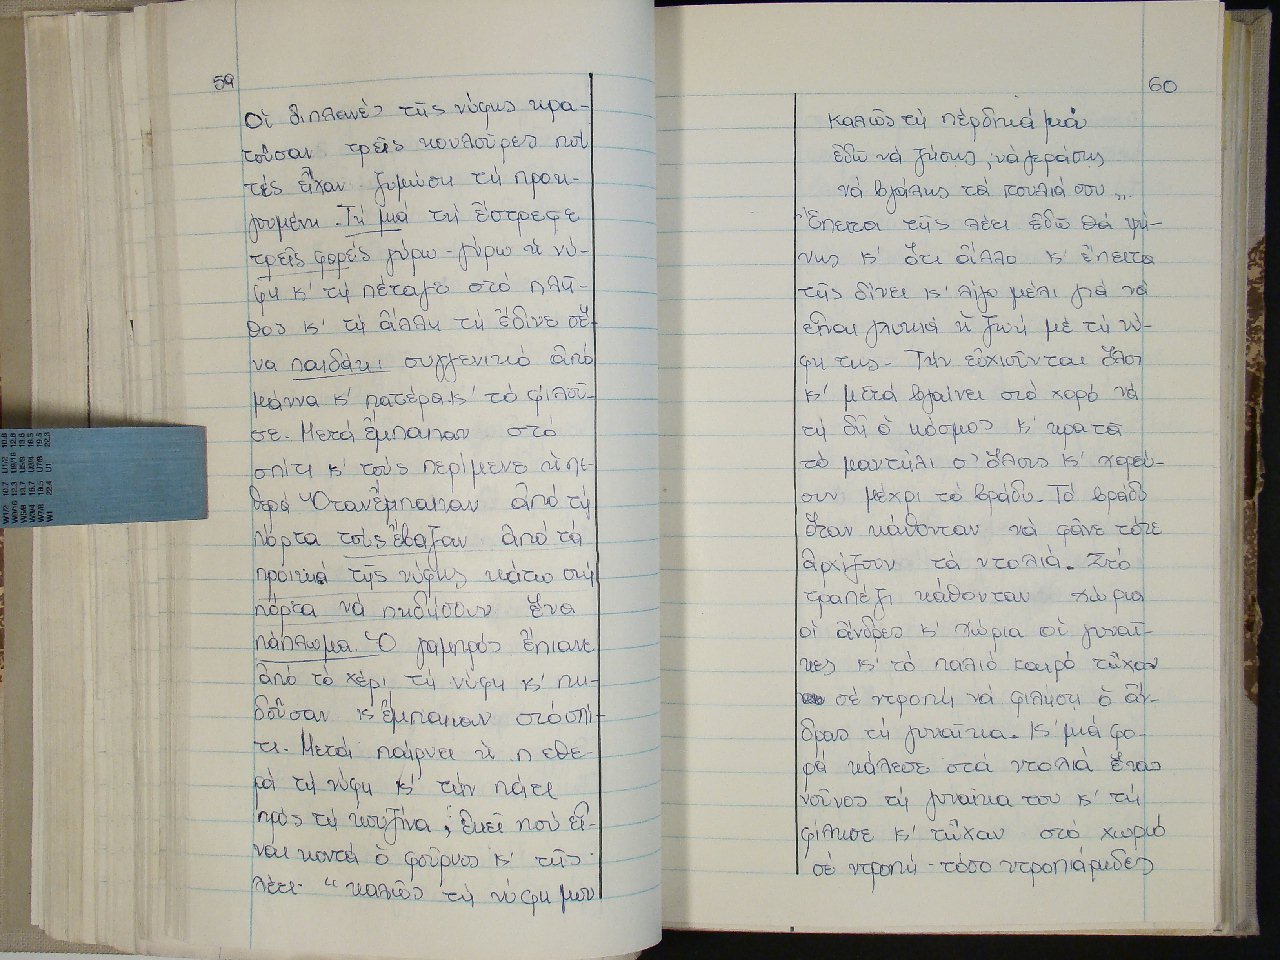 59
Οἱ διπλανές τῆς νύφης κρα-
τοῦσαν τρεῖς κουλοῦρες πού
τές εἶχαν ζυμώση τή προη-
γουμένη. Τή μιά τή ἔστρεφε
τρεῖς φορές γύρω-γύρω ἡ νύ-
φη κ' τή πέταγε στό πλῆ-
θος κ' τή ἄλλη τή ἔδινε σἔ-
να παιδάκι συγγενικό ἀπό
μάννα κ' πατέρα κ' τό φιλοῦ-
σε. Μετά ἔμπαιναν στό
σπίτι κ' τούς περίμενε ἡ πε-
θερά Ὅταν ἔμπαιναν ἀπό τή
πόρτα τούς ἔβαζαν ἀπό τά
προικιά τῆς νύφης κάτω στή
πόρτα νά πηδήσουν ἕνα
πάπλωμα. Ὁ γαμπρός ἔπιανε
ἀπό τό χέρι τή νύφη κ' πη-
δοῦσαν κ' ἔμπαιναν στό σπί-
τι. Μετά παίρνει ἡ πεθε-
ρά τή νύφη κ' τήν πάει
πρός τή κουζίνα, ἐκεῖ πού εἶ-
ναι κοντά ὁ φοῦρνος κ' τῆς
λέει "καλῶς τή νύφη μου
60
καλῶς τή πέρδικά μου
ἐδῶ νά ζήσης, νά γεράσης
νά βγάλης τά πουλιά σου"
Ἔπειτα τῆς λέει ἐδῶ θά ψή-
νης κ' ὅτι ἄλλο κ' ἔπειτα
τῆς δίνει κ' λίγο μέλι γιά νά
εἶναι γλυκιά ἡ ζωή μέ τή νύ-
φη της. Τήν εὐχιοῦνται ὅλοι
κ' μετά βγαίνει στό χορό νά
τή δῆ ὁ κόσμος κ' κρατᾶ
τό μαντήλι σ' ὅλους κ' χορεύ-
ουν μέχρι τό βράδυ. Τό βράδυ
ὅταν κάθονταν νά φᾶνε τότε
ἀρχίζουν τά ντολιά. Στό
τραπέζι κάθονταν χώρια
οἱ ἄνδρες κ' χώρια οἱ γυναῖ-
κες κ' τό παλιό καιρό τὄχαν
σέ ντροπή νά φιλήση ὁ ἄν-
δρας τή γυναῖκα. Κ' μιά φο-
ρά κάλεσε στά ντολιά ἕνας
νοῦνος τή γυναίκα του κ' τή
φίλησε κ' τὄχαν στό χωριό
σέ ντροπή - τόσο ντροπιάρηδες